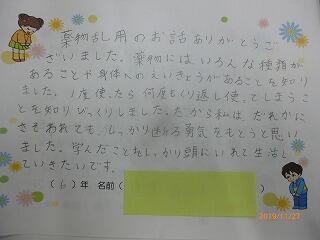 薬物乱用のお話ありがとうご
ざいました。薬物にはいろんな種類が
あることや身体へのえいきょうがあることを知り
ました。1度使ったら何度もくり返し使ってしまうこ
とを知りびっくりしました。だから私は、だれかに
さそわれても、しっかり断る勇気をもとうと思い
ました。学んだことをしっかり頭にいれて生活し
ていきたいです。
(6)年 名前( )
2019/11/27